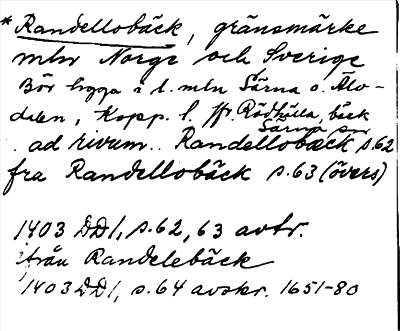 * Randellobäck, gränsmärke
mln Norge och Sverige
Bör ligga i l. mln Särna o. Älv-
dalen, Kopp. l. Jfr Rödhälla, bäck
Särna sn
ad rivum.. Randellobæck s.62
fra Randellobäck s.63 (övers)
1403 DD1, s.62, 63 avtr.
från Randelebäck
1403 DD1, s.64 avskr. 1651-80